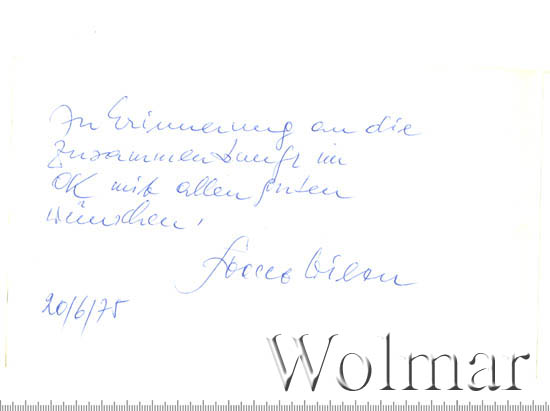 In Erinnerung an die
Zusammenkunft im
OK mit allen guten
Wünschen!
20/6/75
Wolmar